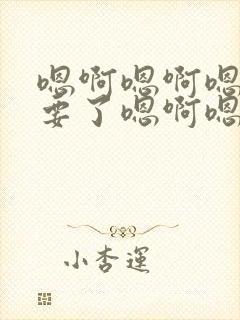 嗯啊嗯啊嗯
要了嗯啊嗯
小杏運